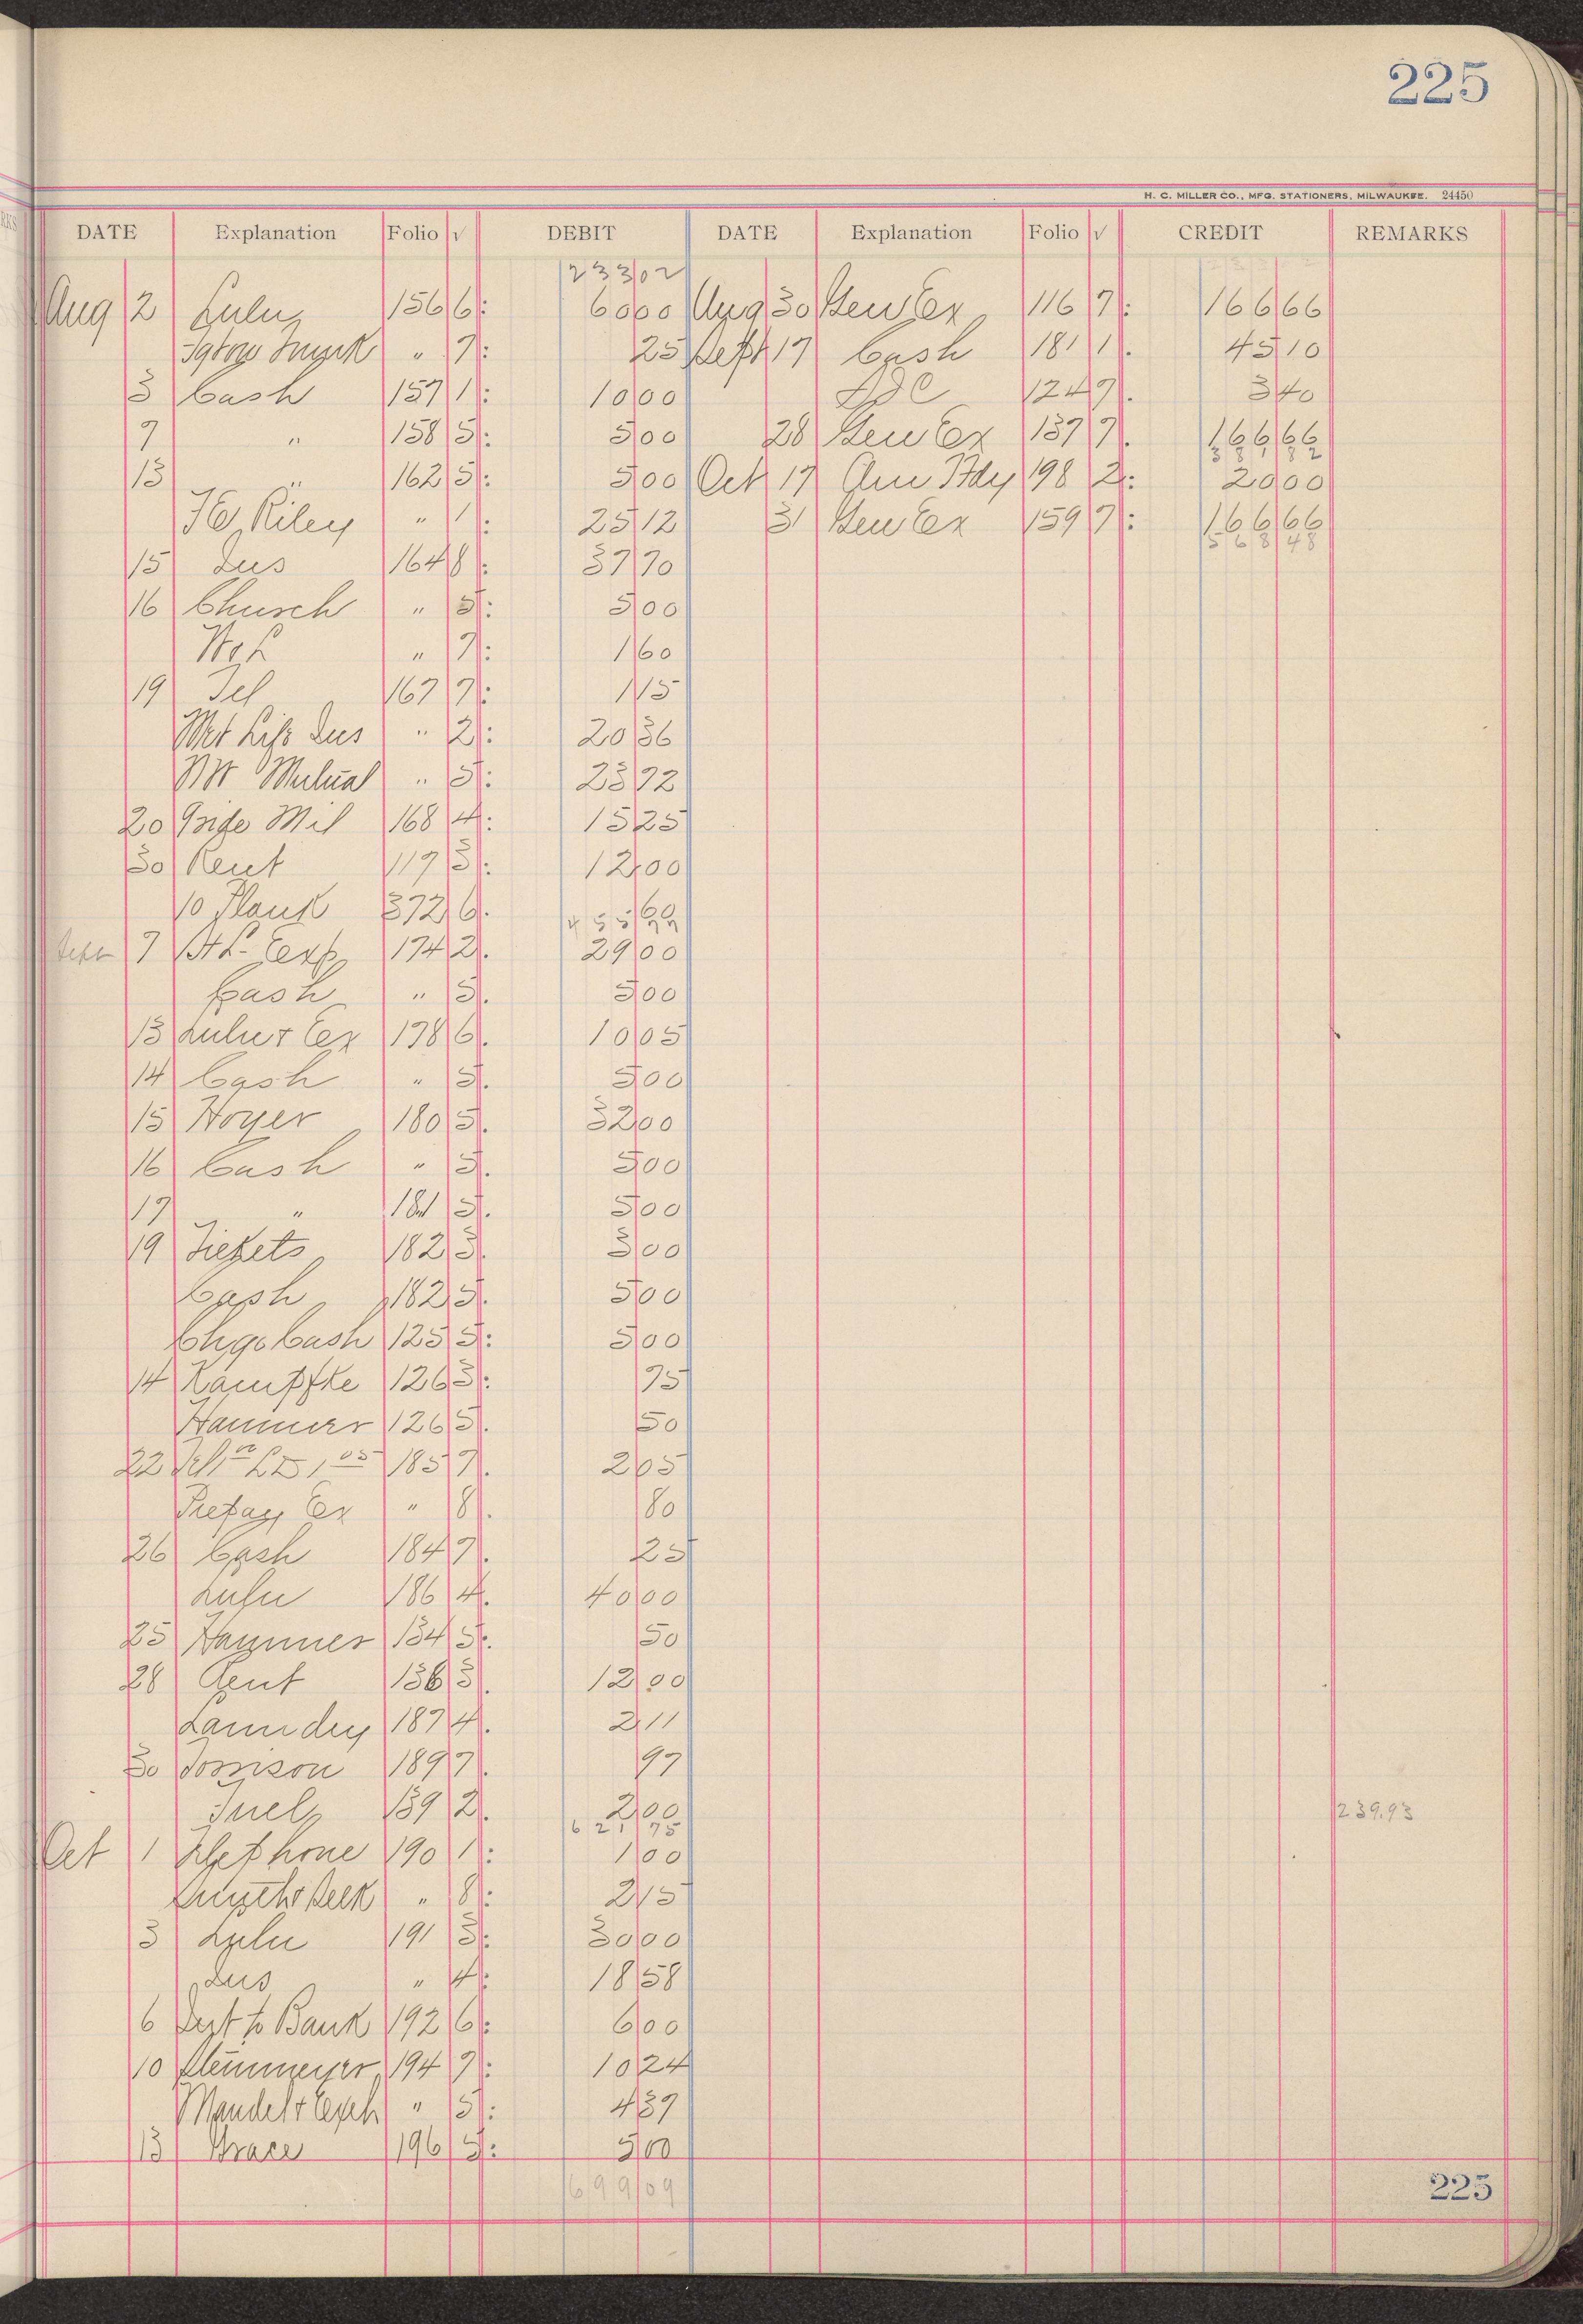 225
H. C. MILLER CO., MFG. STATIONERS, MILWAUKEE. 24450
DATE Explanation Folio √ DEBIT DATE Explanation Folio √ CREDIT REMARKS
233 02
Aug 2 Lulu 156 6 60 00 Aug 30 Gen Ex 116 7 166 66
" 7 25 Sept 17 Cash 181 1 45 10
3 Cash 157 1 10 00 124 7 3 40
7 " 158 5 5 00 28 Gen Ex 137 7 166 66
381 82
13 " 162 5 5 00 Oct 17 198 2 20 00
Riley " 1 25 12 31 Gen Ex 159 7 166 66
568 48
15 Ins 164 8 37 70
16 Church " 5 5 00
" 7 1 60
19 Tel 167 7 1 15
Met Life Ins " 2 20 36
NW Mutual " 5 23 72
20 Mil 168 4 15 25
30 Rent 119 3 12 00
10 Plank 372 6 60
455 77
Sept 7 Exp 174 2 29 00
Cash " 5 5 00
13 Lulu + Ex 178 6 10 05
14 Cash " 5 5 00
15 Hoyer 180 5 32 00
16 Cash " 5 5 00
17 " 181 5 5 00
19 Tickets 182 3 3 00
Cash 182 5 5 00
Chgo Cash 125 5 5 00
14 Kampfke 126 3 75
Hammer 126 5 50
22 185 7 2 05
Ex " 8 80
26 Cash 184 7 25
Lulu 186 4 40 00
25 Hammer 134 5 50
28 Rent 136 3 12 00
Laundry 187 4 2 11
30 189 7 97
Fuel 139 2 2 00 239.93
621 75
Oct 1 Telephone 190 1 1 00
" 8 2 15
3 Lulu 191 3 30 00
Ins " 4 18 58
6 to Bank 192 6 6 00
10 194 7 10 24
Mandel + Exch " 5 4 37
13 Grace 196 5 5 00
699 09
225